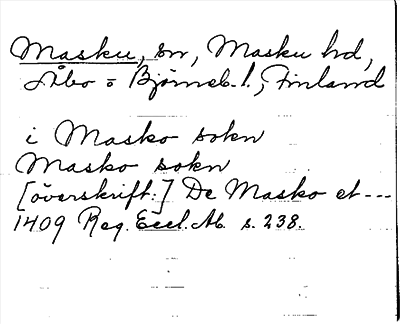 Masku, sn, Masku hd,
Åbo = Björneb. l., Finland
i Masko sokn
Masko sokn
[överskrift:] De Masko et ---
1409 Reg. Eccl. Ab. s. 238.